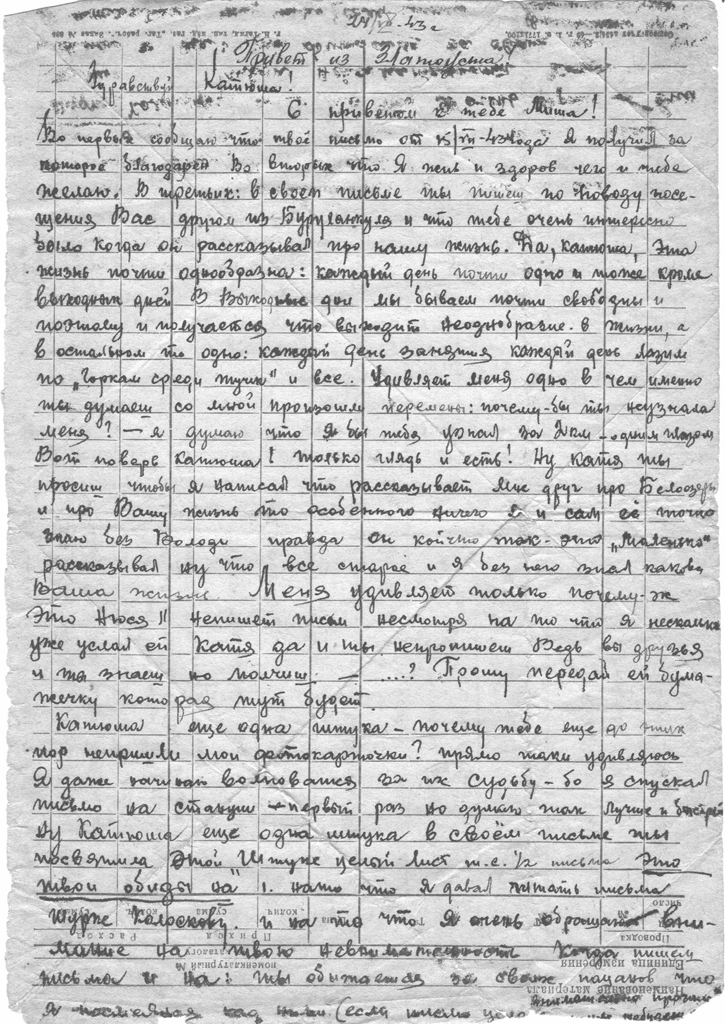 -43г
Привет из
Здравствуй Катюша!
С приветом к тебе Миша!
Во первых сообщаю что твоё письмо от 15/VII-43 года Я получил за
которое благодарен Во вторых что Я жив и здоров чего и тебе
желаю. В третьих: в своем письме ты пишеш по поводу посе-
щения Вас другом из и что тебе очень интересно
было когда он рассказывал про нашу жизнь. Да, Катюша, эта
жизнь почти однообразна: каждый день почти одно и тоже кроме
выходных дней В Выходные дни мы бываем почти свободны и
поэтому и получается что выходит неоднобразие в жизни, а
в остальном то одно: каждый день занятия каждый день лазим
по „горкам среди тучи" и все. Удивляет меня одно в чем именно
ты думаеш со мной произошли перемены: почему-бы ты неузнала
меня? — я думаю что Я бы тебя узнал за 2км одним глазом
Вот поверь Катюша! только глядь и есть! Ну Катя ты
просиш чтобы я написал что рассказывает мне друг про
и про Вашу жизнь то особенного ничего Я и сам её точно
знаю без Володи правда он койчто так-это „маленько"
рассказывал ну что все старое и я без него знал какова
Ваша жизнь Меня удивляет только почему-ж
это Нюся!! непишет писем несмотря на то что я несколько
уже услал ей Катя да и ты непропишеш Ведь вы друзья
и та знаеш но молчиш — ...? Прошу передай ей бума-
жечку которая тут будет.
Катюша еще одна штука — почему тебе еще до этих
пор непришли мои фотокарточки? прямо таки удивляюсь
Я даже начинаю волноватся за их судьбу - бо я спускал
письмо на станции — первый раз но думаю так лучше и быстрей
Ну Катюша еще одна штука в своём письме ты
посвятила этой Штуке целый лист т.е. 1/2 письма это
твои обиды на" 1. нато что я давал читать письма
Шурке и на то что Я очень обращаю вни-
мание на твою невнимательность Когда пишеш
письма и на: ты обижаеся за своих пацанов что
я посмеялся над ними (если письмо
Приход
Расход
номенклатурный №
Единица измерения
Наименование материала